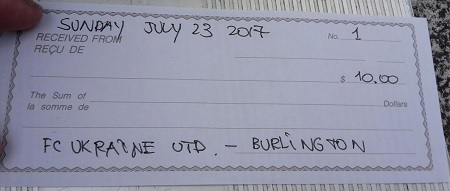 SUNDAY JULY 23 2017
RECEIVED FROM No. 1
REÇU DE
$ 10.00
The Sum of
la somme de Dollars
FC UKRAINE UTD. - BURLINGTON